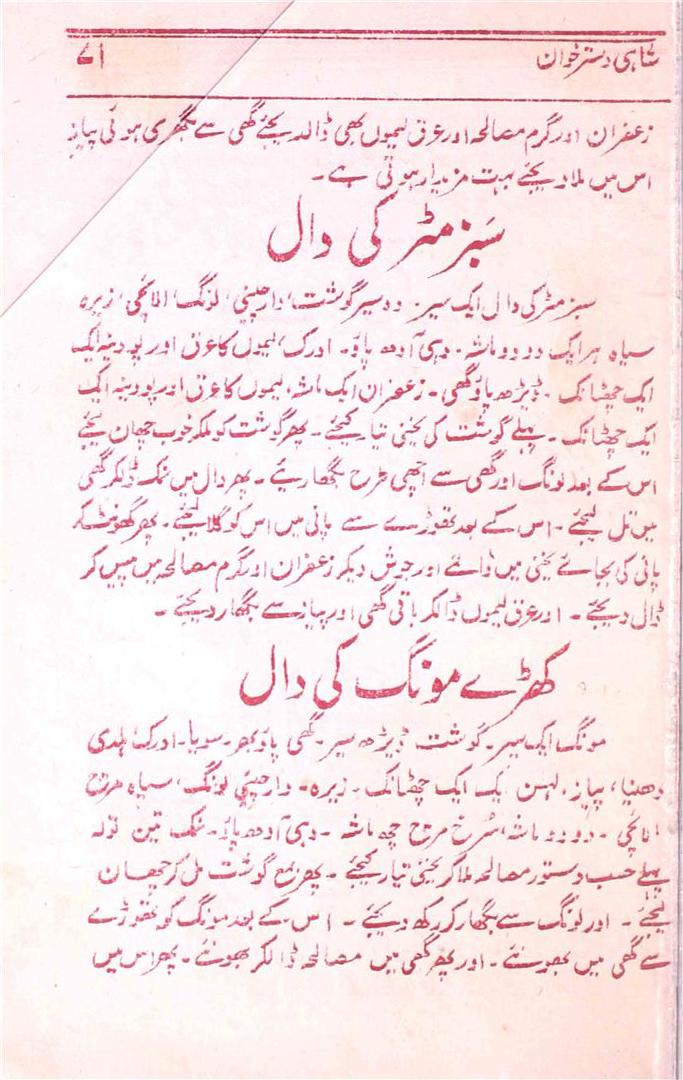 شاہی دستر خوان
۷۱
زعفران اور گرم مصالحہ اور عرق لیموں بھی ڈالدیجئے گھی سے بگھری ہوئی پیاز
اس میں ملا دیجئے بہت مزیدار ہوتی ہے۔
سَبز مٹر کی دال
سبز مٹر کی دال ایک سیر۔ دو سیر گوشت، دارچینی، لونگ، الائچی، زیرہ
سیاہ ہر ایک دو دو ماشہ۔ دہی آدھ پاؤ۔ ادرک، لیموں کا عرق اور پودینہ ایک
ایک چھٹانک۔ ڈیڑھ پاؤ گھی۔ زعفران ایک ماشہ، لیموں کا عرق اور پودینہ ایک
ایک چھٹانک۔ پہلے گوشت کی یخنی تیار کیجئے۔ پھر گوشت کو ملکر خوب چھان لیجئے
اس کے بعد لونگ اور گھی سے اچھی طرح بگھاریئے۔ پھر دال میں نمک ڈالکر گھی
میں تل لیجئے۔ اس کے بعد تھوڑے سے پانی میں اس کو گلا لیجئے۔ پھر گھونٹ کر
پانی کی بجائے یخنی میں ڈالئے اور جوش دیکر زعفران اور گرم مصالحہ میں پیس کر
ڈال دیجئے۔ اور عرق لیموں ڈالکر باقی گھی اور پیاز سے بگھار دیجئے۔
کھڑے مونگ کی دال
مونگ ایک سیر۔ گوشت ڈیڑھ سیر۔ گھی پاؤ بھر۔ سویا۔ ادرک، ہلدی
دھنیا، پیاز، لہسن ایک ایک چھٹانک۔ زیرہ۔ دارچینی لونگ، سیاہ مرچ
الائچی۔ دو دو ماشہ، سُرخ مرچ چھ ماشہ۔ دہی آدھ پاؤ۔ نمک تین تولہ
پہلے حسب دستور مصالحہ ملا کر یخنی تیار کیجئے۔ پھر مع گوشت مل کر چھان
لیجئے۔ اور لونگ سے بگھار کر رکھ دیجئے۔ اس کے بعد مونگ کو تھوڑے
سے گھی میں بھونئے۔ اور پھر گھی میں مصالحہ ڈالکر بھونئے۔ پھر اس میں